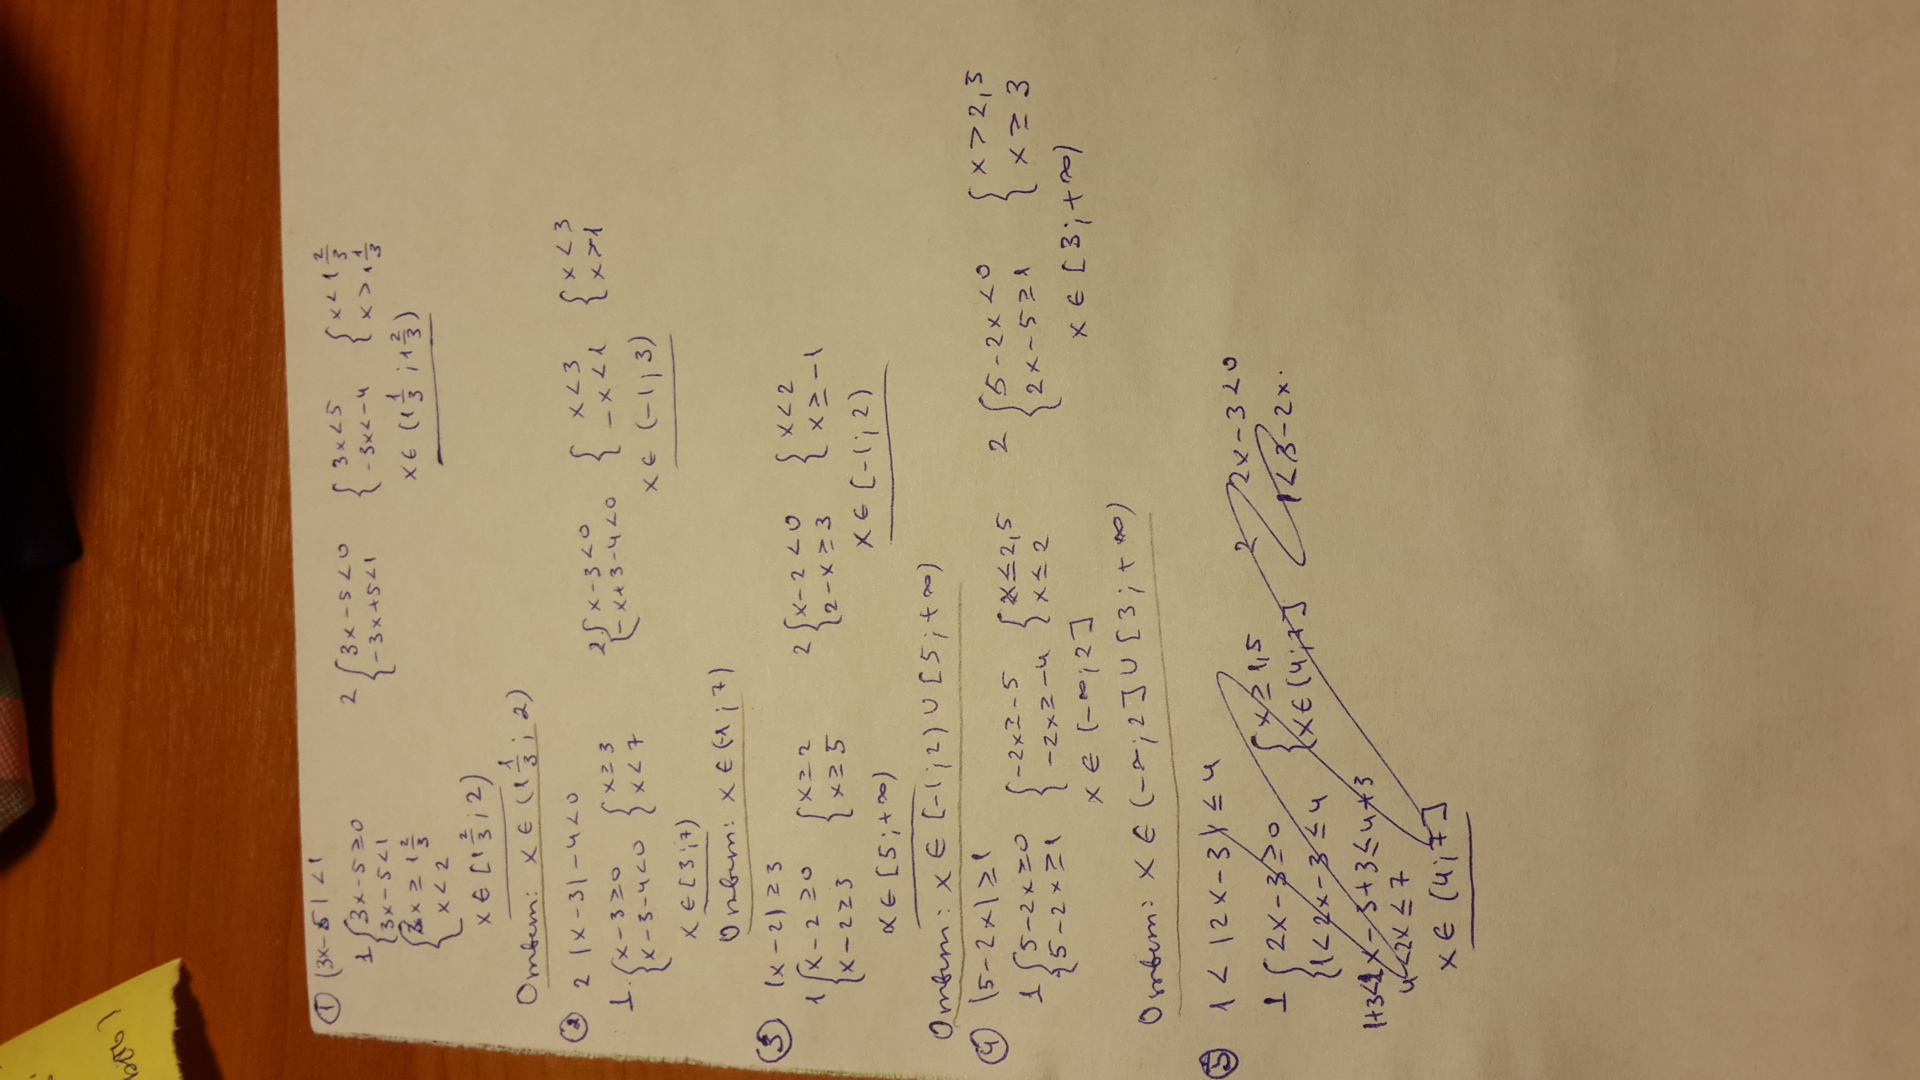 ① |3x-5|<1
1 {3x-5≥0
3x-5<1
{x≥1 2/3
x<2
x∈[1 2/3; 2)
2 {3x-5<0
-3x+5<1
{3x<5
-3x<-4
{x<1 2/3
x>1 1/3
x∈(1 1/3; 1 2/3)
Ответ: x∈(1 1/3; 2)
② |x-3|-4<0
1. {x-3≥0
x-3-4<0
{x≥3
x<7
x∈[3;7)
2 {x-3<0
-x+3-4<0
{x<3
-x<1
{x<3
x>-1
x∈(-1;3)
Ответ: x∈(-1;7)
③ |x-2|≥3
1 {x-2≥0
x-2≥3
{x≥2
x≥5
x∈[5;+∞)
2 {x-2<0
2-x≥3
{x<2
x≥-1
x∈[-1;2)
Ответ: x∈[-1;2)∪[5;+∞)
④ |5-2x|≥1
1 {5-2x≥0
5-2x≥1
{-2x≥-5
-2x≥-4
{x≤2,5
x≤2
x∈(-∞;2]
2 {5-2x<0
2x-5≥1
{x>2,5
x≥3
x∈[3;+∞)
Ответ: x∈(-∞;2]∪[3;+∞)
⑤ 1<|2x-3|≤4
1 {2x-3≥0
1<2x-3≤4
{x≥1,5
x∈(4;7]
1+3<2x-3+3≤4+3
4<2x≤7
x∈(4;7]
2 2x-3<0
1<3-2x